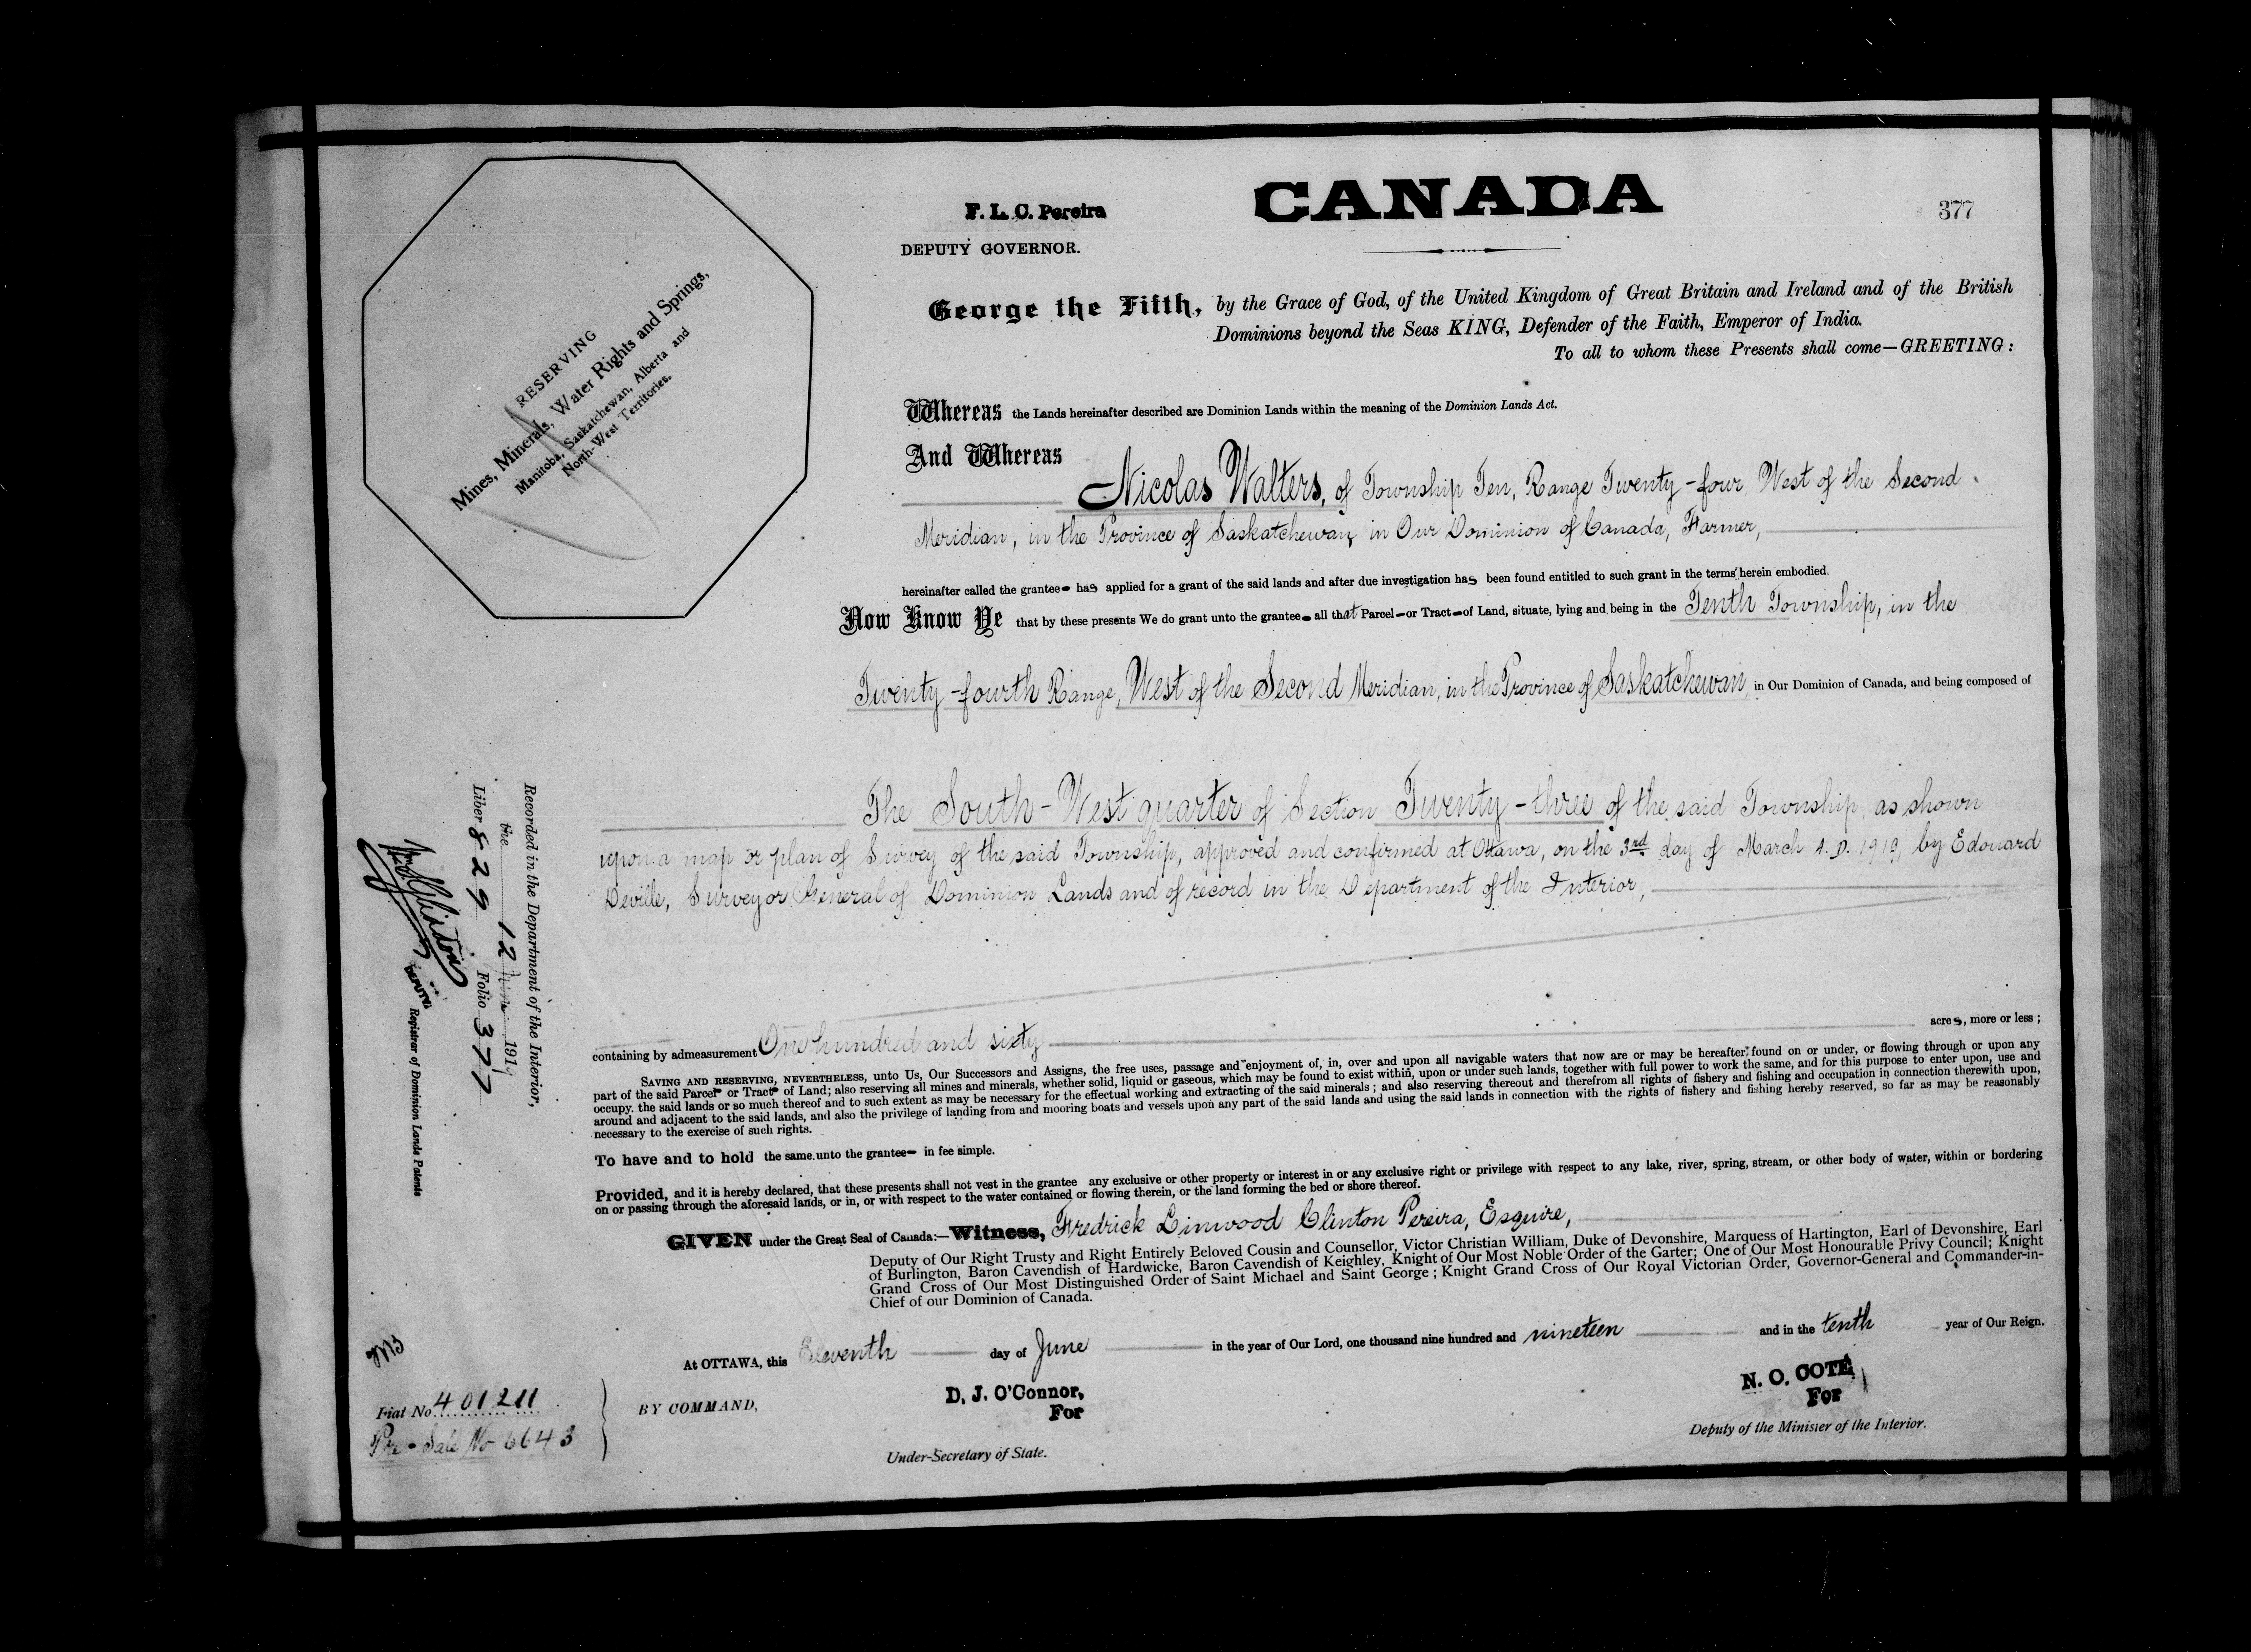 F. L. C. Pereira
DEPUTY GOVERNOR.
CANADA
377
RESERVING
Mines, Minerals, Water Rights and Springs,
Manitoba, Saskatchewan, Alberta and
North-West Territories.
George the Fifth, by the Grace of God, of the United Kingdom of Great Britain and Ireland and of the British
Dominions beyond the Seas KING, Defender of the Faith, Emperor of India.
To all to whom these Presents shall come—GREETING:
Whereas the Lands hereinafter described are Dominion Lands within the meaning of the Dominion Lands Act.
And Whereas
Nicolas Walters, of Township Ten, Range Twenty-four West of the Second
Meridian, in the Province of Saskatchewan, in Our Dominion of Canada, Farmer,
hereinafter called the grantee has applied for a grant of the said lands and after due investigation has been found entitled to such grant in the terms herein embodied.
Now Know Ye that by these presents We do grant unto the grantee all that Parcel or Tract of Land, situate, lying and being in the Tenth Township, in the
Twenty-fourth Range, West of the Second Meridian, in the Province of Saskatchewan, in Our Dominion of Canada, and being composed of
The South-West quarter of Section Twenty-three of the said Township, as shown
upon a map or plan of Survey of the said Township, approved and confirmed at Ottawa, on the 3rd day of March A.D. 1919, by Edouard
Deville, Surveyor General of Dominion Lands and of record in the Department of the Interior,
containing by admeasurement One hundred and sixty acres, more or less;
SAVING AND RESERVING, NEVERTHELESS, unto Us, Our Successors and Assigns, the free uses, passage and enjoyment of, in, over and upon all navigable waters that now are or may be hereafter found on or under, or flowing through or upon any
part of the said Parcel or Tract of Land; also reserving all mines and minerals, whether solid, liquid or gaseous, which may be found to exist within, upon or under such lands, together with full power to work the same, and for this purpose to enter upon, use and
occupy the said lands or so much thereof and to such extent as may be necessary for the effectual working and extracting of the said minerals; and also reserving thereout and therefrom all rights of fishery and fishing and occupation in connection therewith upon,
around and adjacent to the said lands, and also the privilege of landing from and mooring boats and vessels upon any part of the said lands and using the said lands in connection with the rights of fishery and fishing hereby reserved, so far as may be reasonably
necessary to the exercise of such rights.
To have and to hold the same unto the grantee in fee simple.
Provided, and it is hereby declared, that these presents shall not vest in the grantee any exclusive or other property or interest in or any exclusive right or privilege with respect to any lake, river, spring, stream, or other body of water, within or bordering
on or passing through the aforesaid lands, or in, or with respect to the water contained or flowing therein, or the land forming the bed or shore thereof.
GIVEN under the Great Seal of Canada:—Witness, Fredrick Linwood Clinton Pereira, Esquire,
Deputy of Our Right Trusty and Right Entirely Beloved Cousin and Counsellor, Victor Christian William, Duke of Devonshire, Marquess of Hartington, Earl of Devonshire, Earl
of Burlington, Baron Cavendish of Hardwicke, Baron Cavendish of Keighley, Knight of Our Most Noble Order of the Garter; One of Our Most Honourable Privy Council; Knight
Grand Cross of Our Most Distinguished Order of Saint Michael and Saint George; Knight Grand Cross of Our Royal Victorian Order, Governor-General and Commander-in-
Chief of our Dominion of Canada.
At OTTAWA, this Eleventh day of June in the year of Our Lord, one thousand nine hundred and nineteen and in the tenth year of Our Reign.
BY COMMAND,
D. J. O'Connor,
For
Under-Secretary of State.
N. O. COTE
For
Deputy of the Minister of the Interior.
Recorded in the Department of the Interior,
the 12 June 1919
Liber 829 Folio 377
DEPUTY
Registrar of Dominion Lands Patents
Fiat No. 401211
Pre-Sale No 6643